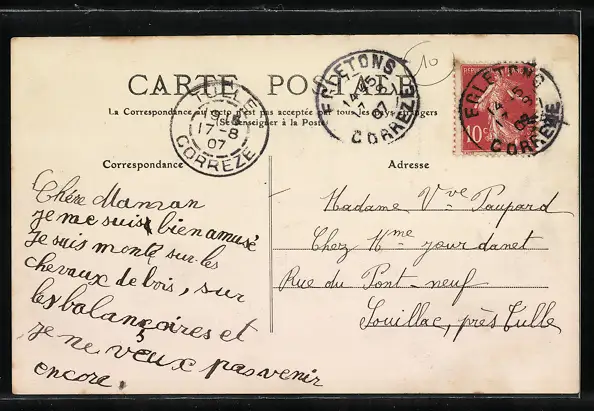 CARTE POSTALE
La Correspondance au recto n'est pas acceptée par tous les pays étrangers
(Se renseigner à la Poste)
TULLE
17-8
07
CORREZE
EGLETONS
14
07
CORREZE
10
EGLETONS
14
CORREZE
10c
Correspondance
Chére Maman
je me suis bien amusé
Je suis monté sur les
chevaux de bois, sur
les balançoires et
je ne veux pas venir
encore.
Adresse
Madame Vve Paupard
Chez Mme jourdanet
Rue du Pont-neuf
Souillac, près Tulle